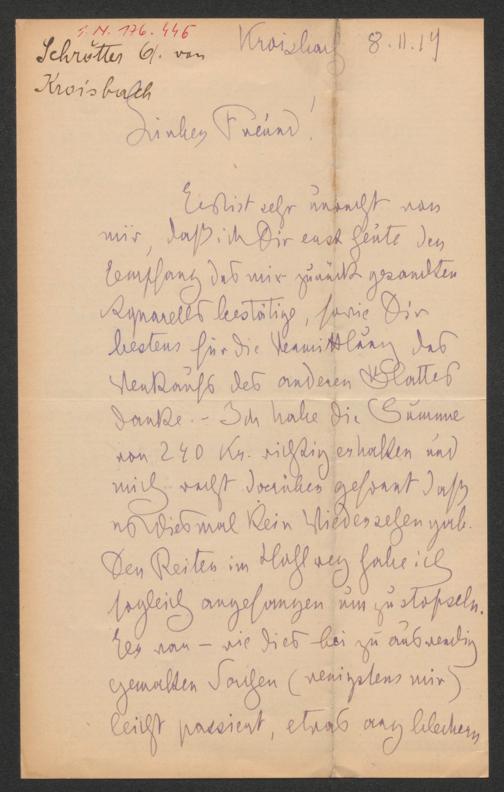 I. N. 176.446
Schrötter A. von
Kroisbach
Kroisbach 8.II.19
Lieber Freund!
Es ist sehr unrecht von
mir, daß ich Dir erst heute den
Empfang des mir zurück gesandten
Aquarells bestätige, sowie Dir
bestens für die Vermittlung des
Verkaufs des anderen Blattes
danke. - Ich habe die Summe
von 240 Kr. richtig erhalten und
mich recht darüber gefreut daß
es diesmal kein Wiedersehen gab.
Den Reiter im Hohlweg habe ich
sogleich angefangen umzustopseln.
Er war - wie dies bei zu auswendig
gemalten Sachen (wenigstens mir)
leicht passiert, etwas arg blechern